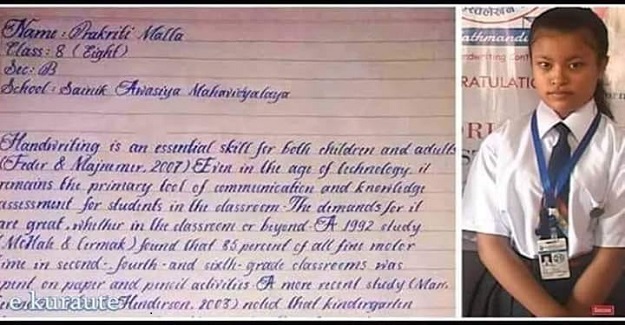 Name : Prakriti Malla
Class : 8 (Eight)
Sec : B
School : Sainik Awasiya Mahavidyalaya
Handwriting is an essential skill for both children and adults
(Feder & Majnemer, 2007) Even in the age of technology, it
remains the primary tool of communication and knowledge
assessment for students in the classroom. The demands for it
are great, whether in the classroom or beyond. A 1992 study
(McHale & Cermak) found that 85 percent of all fine motor
time in second-, fourth- and sixth- grade classrooms was
spent on paper and pencil activities. A more recent study (Marr,
Henderson, 2003) noted that kindergarten
e.kuraute
athmandu
RATULATI